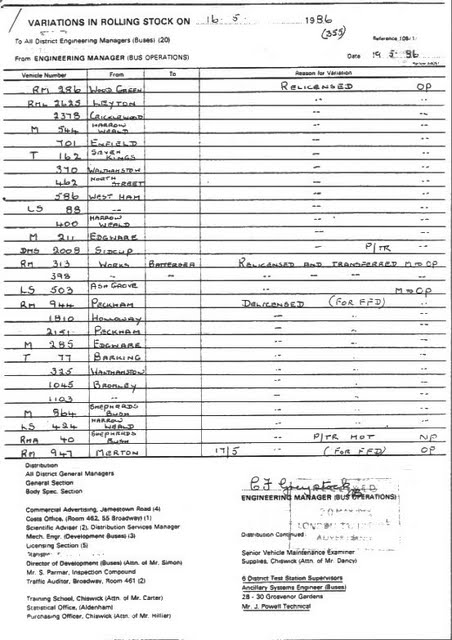 VARIATIONS IN ROLLING STOCK ON 16 . 5 1986
(355)
To All District Engineering Managers (Buses) (20)
From ENGINEERING MANAGER (BUS OPERATIONS) Date 19 5 86
Vehicle Number From To Reason for Variation
RM 286 WOOD GREEN RELICENSED OP
RML 2625 LEYTON -- --
2378 CRICKLEWOOD -- --
M 544 HARROW WEALD -- --
701 ENFIELD -- --
T 162 SEVEN KINGS -- --
370 WALTHAMSTOW -- --
462 NORTH STREET -- --
586 WEST HAM -- --
LS 88 -- -- --
400 HARROW WEALD -- --
M 211 EDGWARE -- --
DMS 2008 SIDCUP -- P/TR
RM 313 WORKS BATTERSEA RELICENSED AND TRANSFERRED M⇒OP
398 -- -- -- -- -- --
LS 503 ASH GROVE M⇒OP
RM 944 PECKHAM DELICENSED (FOR FFD) OP
1810 HOLLOWAY -- -- --
2151 PECKHAM -- -- --
M 285 EDGWARE -- --
T 77 BARKING -- --
325 WALTHAMSTOW -- --
1045 BROMLEY -- --
1103 -- -- --
M 864 SHEPHERDS BUSH -- --
LS 424 HARROW WEALD -- --
RMA 40 SHEPHERDS BUSH -- P/TR MOT NP
RM 947 MERTON 17/5 -- (FOR FFD) OP
Distribution
All District General Managers
General Section
Body Spec. Section
ENGINEERING MANAGER (BUS OPERATIONS)
Commercial Advertising, Jamestown Road (4)
Costs Office, (Room 462, 55 Broadway) (1)
Scientific Adviser (2), Distribution Services Manager
Mech. Engr. (Development Buses) (3)
Licensing Section (5)
Director of Development (Buses) (Attn. of Mr. Simon)
Mr. S. Parmar, Inspection Compound
Traffic Auditor, Broadway, Room 461 (2)
Training School, Chiswick (Attn. of Mr. Carter)
Statistical Office, (Aldenham)
Purchasing Officer, Chiswick (Attn. of Mr. Hillier)
Distribution Continued
Senior Vehicle Maintenance Examiner
Supplies, Chiswick (Attn. of Mr. Dancy)
6 District Test Station Supervisors
Ancillary Systems Engineer (Buses)
28 - 30 Grosvenor Gardens
Mr. J. Powell Technical